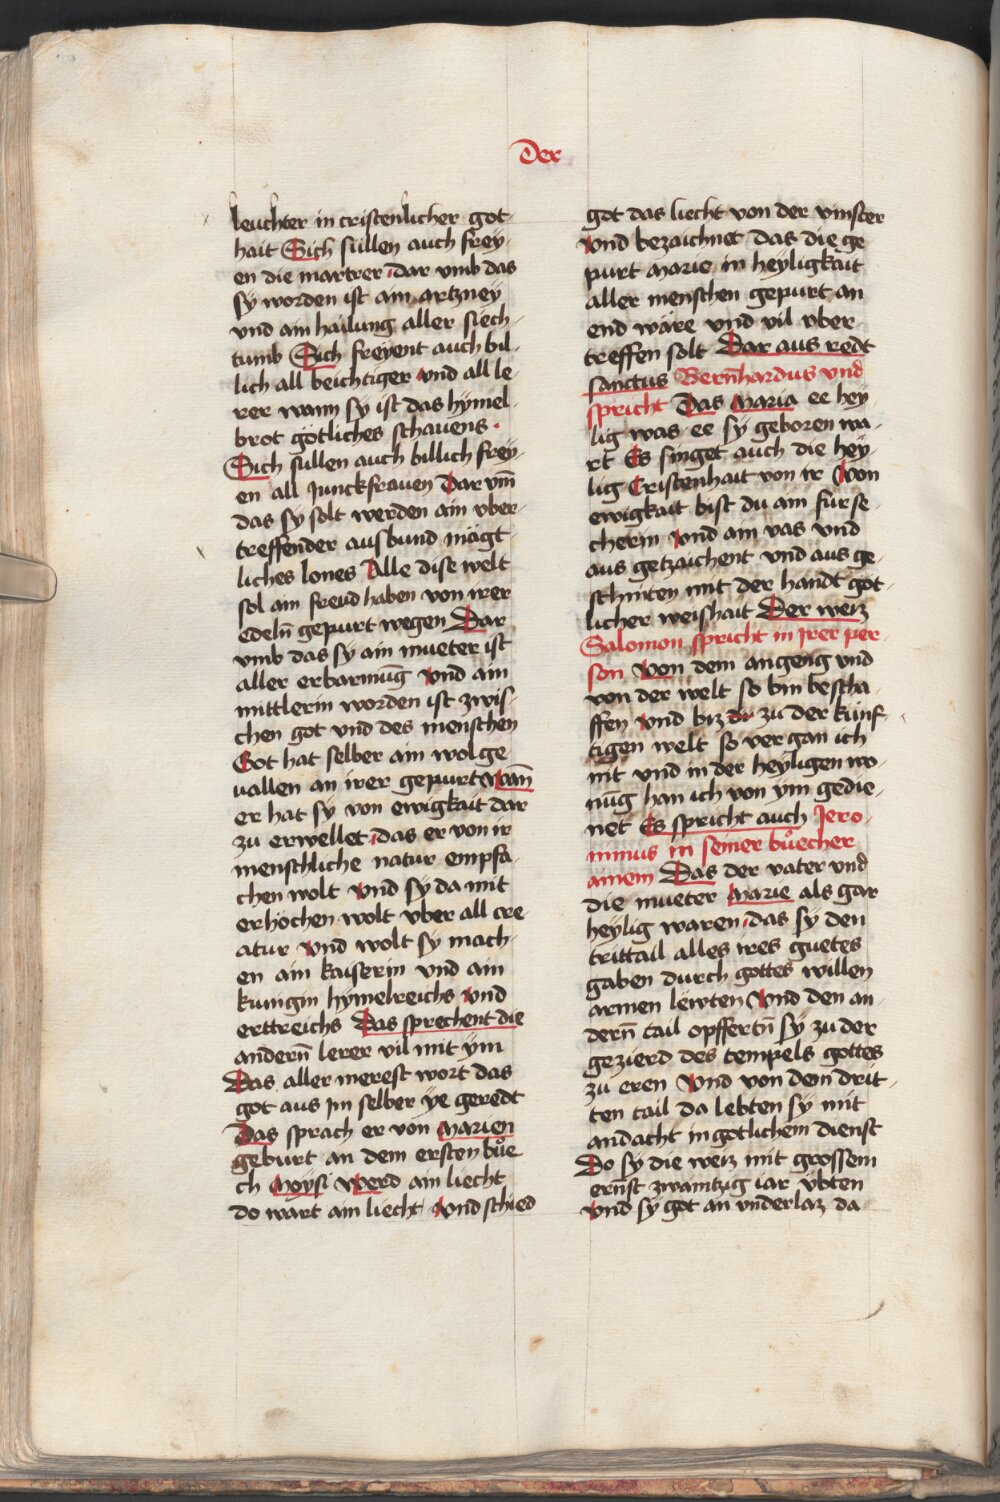 Der
leuchter in cristenlicher got-
hait Sich süllen auch frey-
en die martrer dar vmb das
sÿ worden ist ain artzneÿ
vnd ain hailung aller siech-
tumb Sich freÿent auch bil-
lich all beichtiger vnd all le-
rer wann sÿ ist das hÿmel-
brot götliches schauens.
Sich sullen auch billich freÿ-
en all Junckfrauen Dar vm̄
das sÿ solt werden ain vber-
treffender ausbund mägt-
liches lones Alle dise welt
sol ain freud haben von irer
edeln̄ gepurt wegen Dar
vmb das sÿ ain mueter ist
aller erbarmūg vnd ain
mittlerin worden ist zwis-
chen got vnd des menschen
Got hat selber ain wolge
uallen an irer gepurt Wan̄
er hat sÿ von ewigkait dar
zu erwellet das er von ir
menschliche natur empfa-
chen wolt vnd sÿ da mit
erhöchen wolt vber all cre
atur vnd wolt sÿ mach-
en ain kaiserin vnd ain
kunigin hÿmelreichs vnd
erttreichs Das sprechent die
andern̄ lerer vil mit ÿm
Das aller merest wort das
got aus Im selber ÿe geredt
Das sprach er von Marien
geburt an dem ersten bůe
ch Moÿsi Werd ain liecht
do wart ain liecht vnd schied
got das liecht von der vinster
vnd bezaichnet das die ge
purt Marie in heyligkait
aller menschen gepurt an
end wäre vnd vil vber-
treffen solt Dar aus redt
sanctus Bern̄hardus vnd
spricht Das Maria ee hey-
lig was ee sÿ geboren wa-
rt Es singet auch die heÿ-
lig Cristenhait von ir Von
ewigkait bist du ain furse-
cherin vnd ain vas vnd
aus getzaichent vnd aus ge-
schniten mit der handt göt-
licher weishait Der weiz
Salomon spricht in Irer per-
son Von dem angeng vnd
von der welt so bin bescha-
ffen vnd biz zu der künf-
tigen welt so vergan ich
nit vnd in der heÿligen wo-
nūg han ich von ÿm gedie-
net Es spricht auch Jero-
nimus in seiner bůecher
ainem Das der vater vnd
die mueter Marie als gar
heÿlig waren das sÿ den
trittail alles ires guetes
gaben durch gottes willen
armen lëwten Vnd den an-
dern̄ tail opffertn̄ sÿ zu der
gezierd des tempels gottes
zu eren Vnd von dem drit-
ten tail da lebten sÿ mit
andacht in gotlichem dienst
Do sÿ die weiz mit grossem
ernst zwaintzig iar übten
vnd sÿ got an vnderlaz da